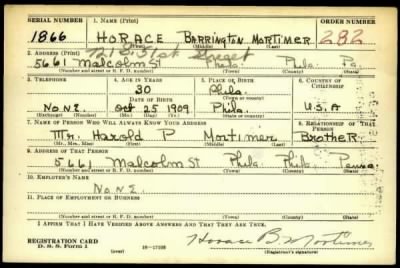 SERIAL NUMBER 1. NAME (Print) ORDER NUMBER
1866 HORACE BARRINGTON MORTIMER 282
(First) (Middle) (Last)
2. ADDRESS (Print) 721 S. 31st Street
5661 Malcolm St Phila. Phila. Pa.
(Number and street or R. F. D. number) (Town) (County) (State)
3. TELEPHONE 4. AGE IN YEARS 5. PLACE OF BIRTH 6. COUNTRY OF CITIZENSHIP
30 Phila.
DATE OF BIRTH (Town or county)
None Oct 25 1909 Penna U.S.A
(Exchange) (Number) (Mo.) (Day) (Yr.) (State or country)
7. NAME OF PERSON WHO WILL ALWAYS KNOW YOUR ADDRESS 8. RELATIONSHIP OF THAT PERSON
Mr. Harold P Mortimer Brother
(Mr., Mrs., Miss) (First) (Middle) (Last)
9. ADDRESS OF THAT PERSON
5661 Malcolm St Phila Phila Penna
(Number and street or R. F. D. number) (Town) (County) (State)
10. EMPLOYER'S NAME
None.
11. PLACE OF EMPLOYMENT OR BUSINESS
(Number and street or R. F. D. number) (Town) (County) (State)
I AFFIRM THAT I HAVE VERIFIED ABOVE ANSWERS AND THAT THEY ARE TRUE.
REGISTRATION CARD
D. S. S. Form 1 (over) 16—17105 Horace B. Mortimer
(Registrant's signature)